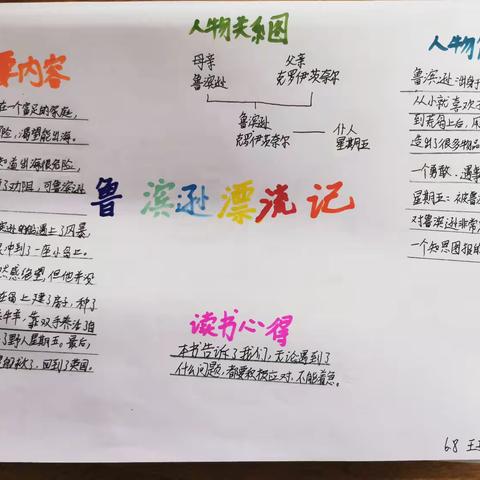 人物关系图
母亲
鲁滨逊
父亲
克罗伊茨奈尔
鲁滨逊
克罗伊茨奈尔
仆人
星期五
鲁滨逊漂流记
内容
在一个富足的家庭,
险,渴望能出海。
知道出海很危险,
了劝阻,可鲁滨逊
遇上了风暴
冲到了一座小岛上。
然感绝望,但他并没
在岛上建了房子,种了
靠双手养活了自
了野人星期五。最后,
了,回到了英国。
人物
鲁滨逊:出身于
从小就喜欢
到荒岛上后,用
造出了很多物品
一个勇敢、遇事
星期五:被鲁
对鲁滨逊非常
一个知恩图报的
读书心得
本书告诉了我们,无论遇到了
什么问题,都要积极应对,不能着急。
6.8 王